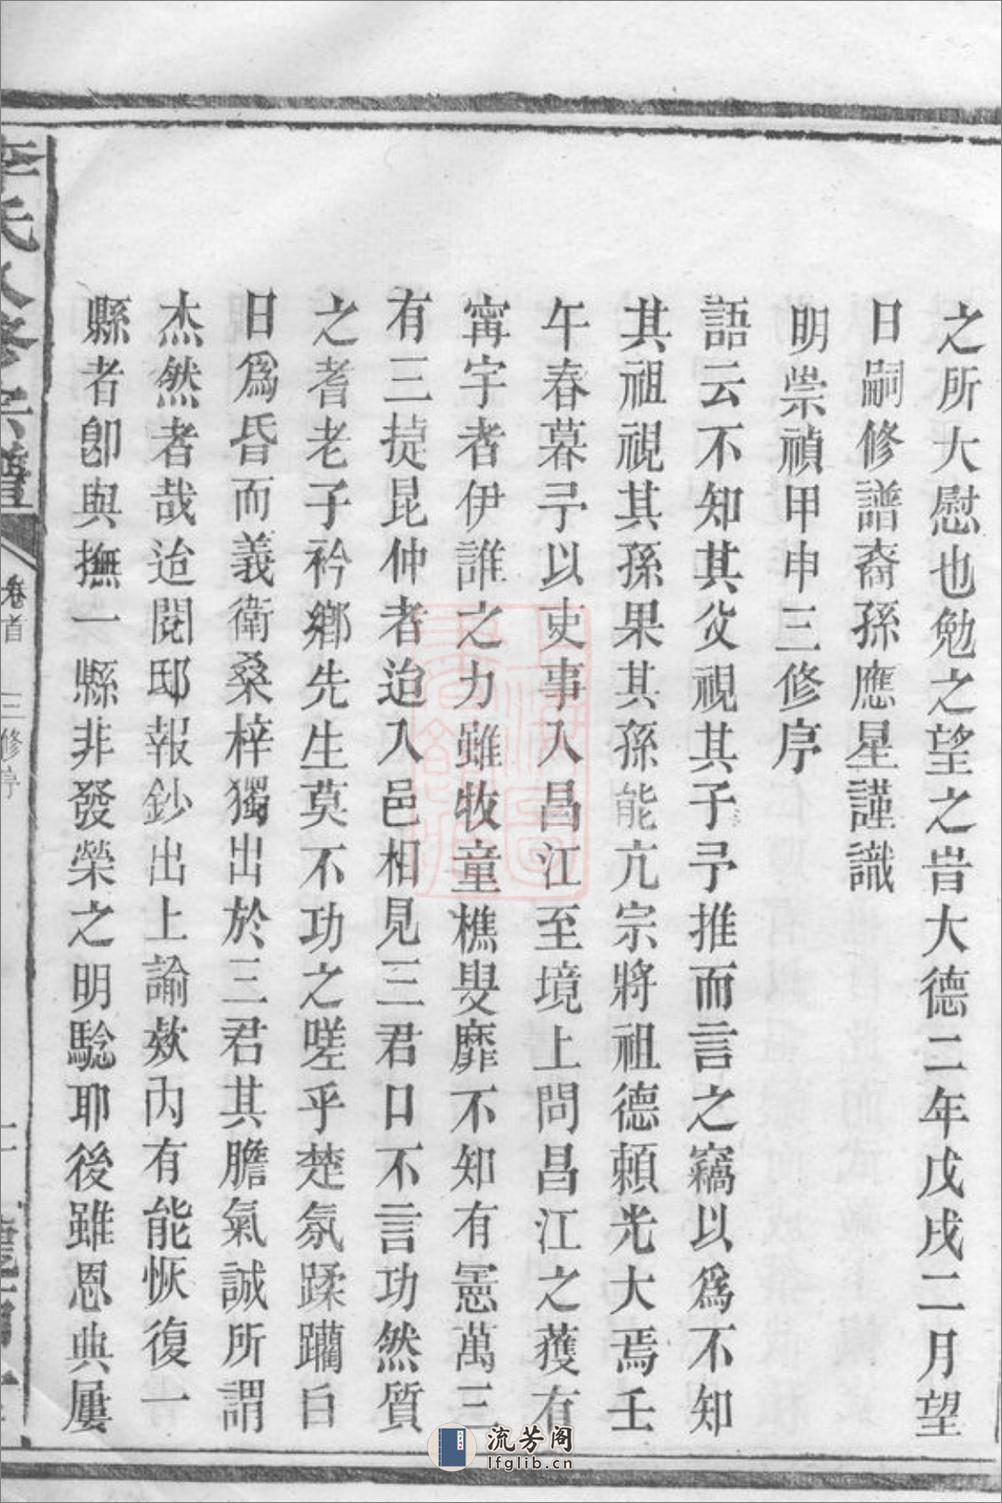 之所大慰也勉之望之旹大德二年戊戌二月望
日嗣修譜裔孫應星謹識
明崇禎甲申三修序
語云不知其父視其子予推而言之竊以爲不知
其祖視其孫果其孫能亢宗將祖德頼光大焉壬
午春暮予以吏事入昌江至境上問昌江之獲有
寗宇者伊誰之力雖牧童樵叟靡不知有憲萬三
有三㨗昆仲者迨入邑相見三君口不言功然質
之耆老子衿鄉先生莫不功之嗟乎楚氛蹂躪白
日爲昏而義衛桑梓獨出於三君其膽氣誠所謂
杰然者哉迨閱邸報鈔出上諭欵內有能恢復一
縣者卽與撫一縣非發榮之明騐耶後雖恩典屢
李氏八修宗譜
卷首
三修序
流芳阁
lfglib.cn